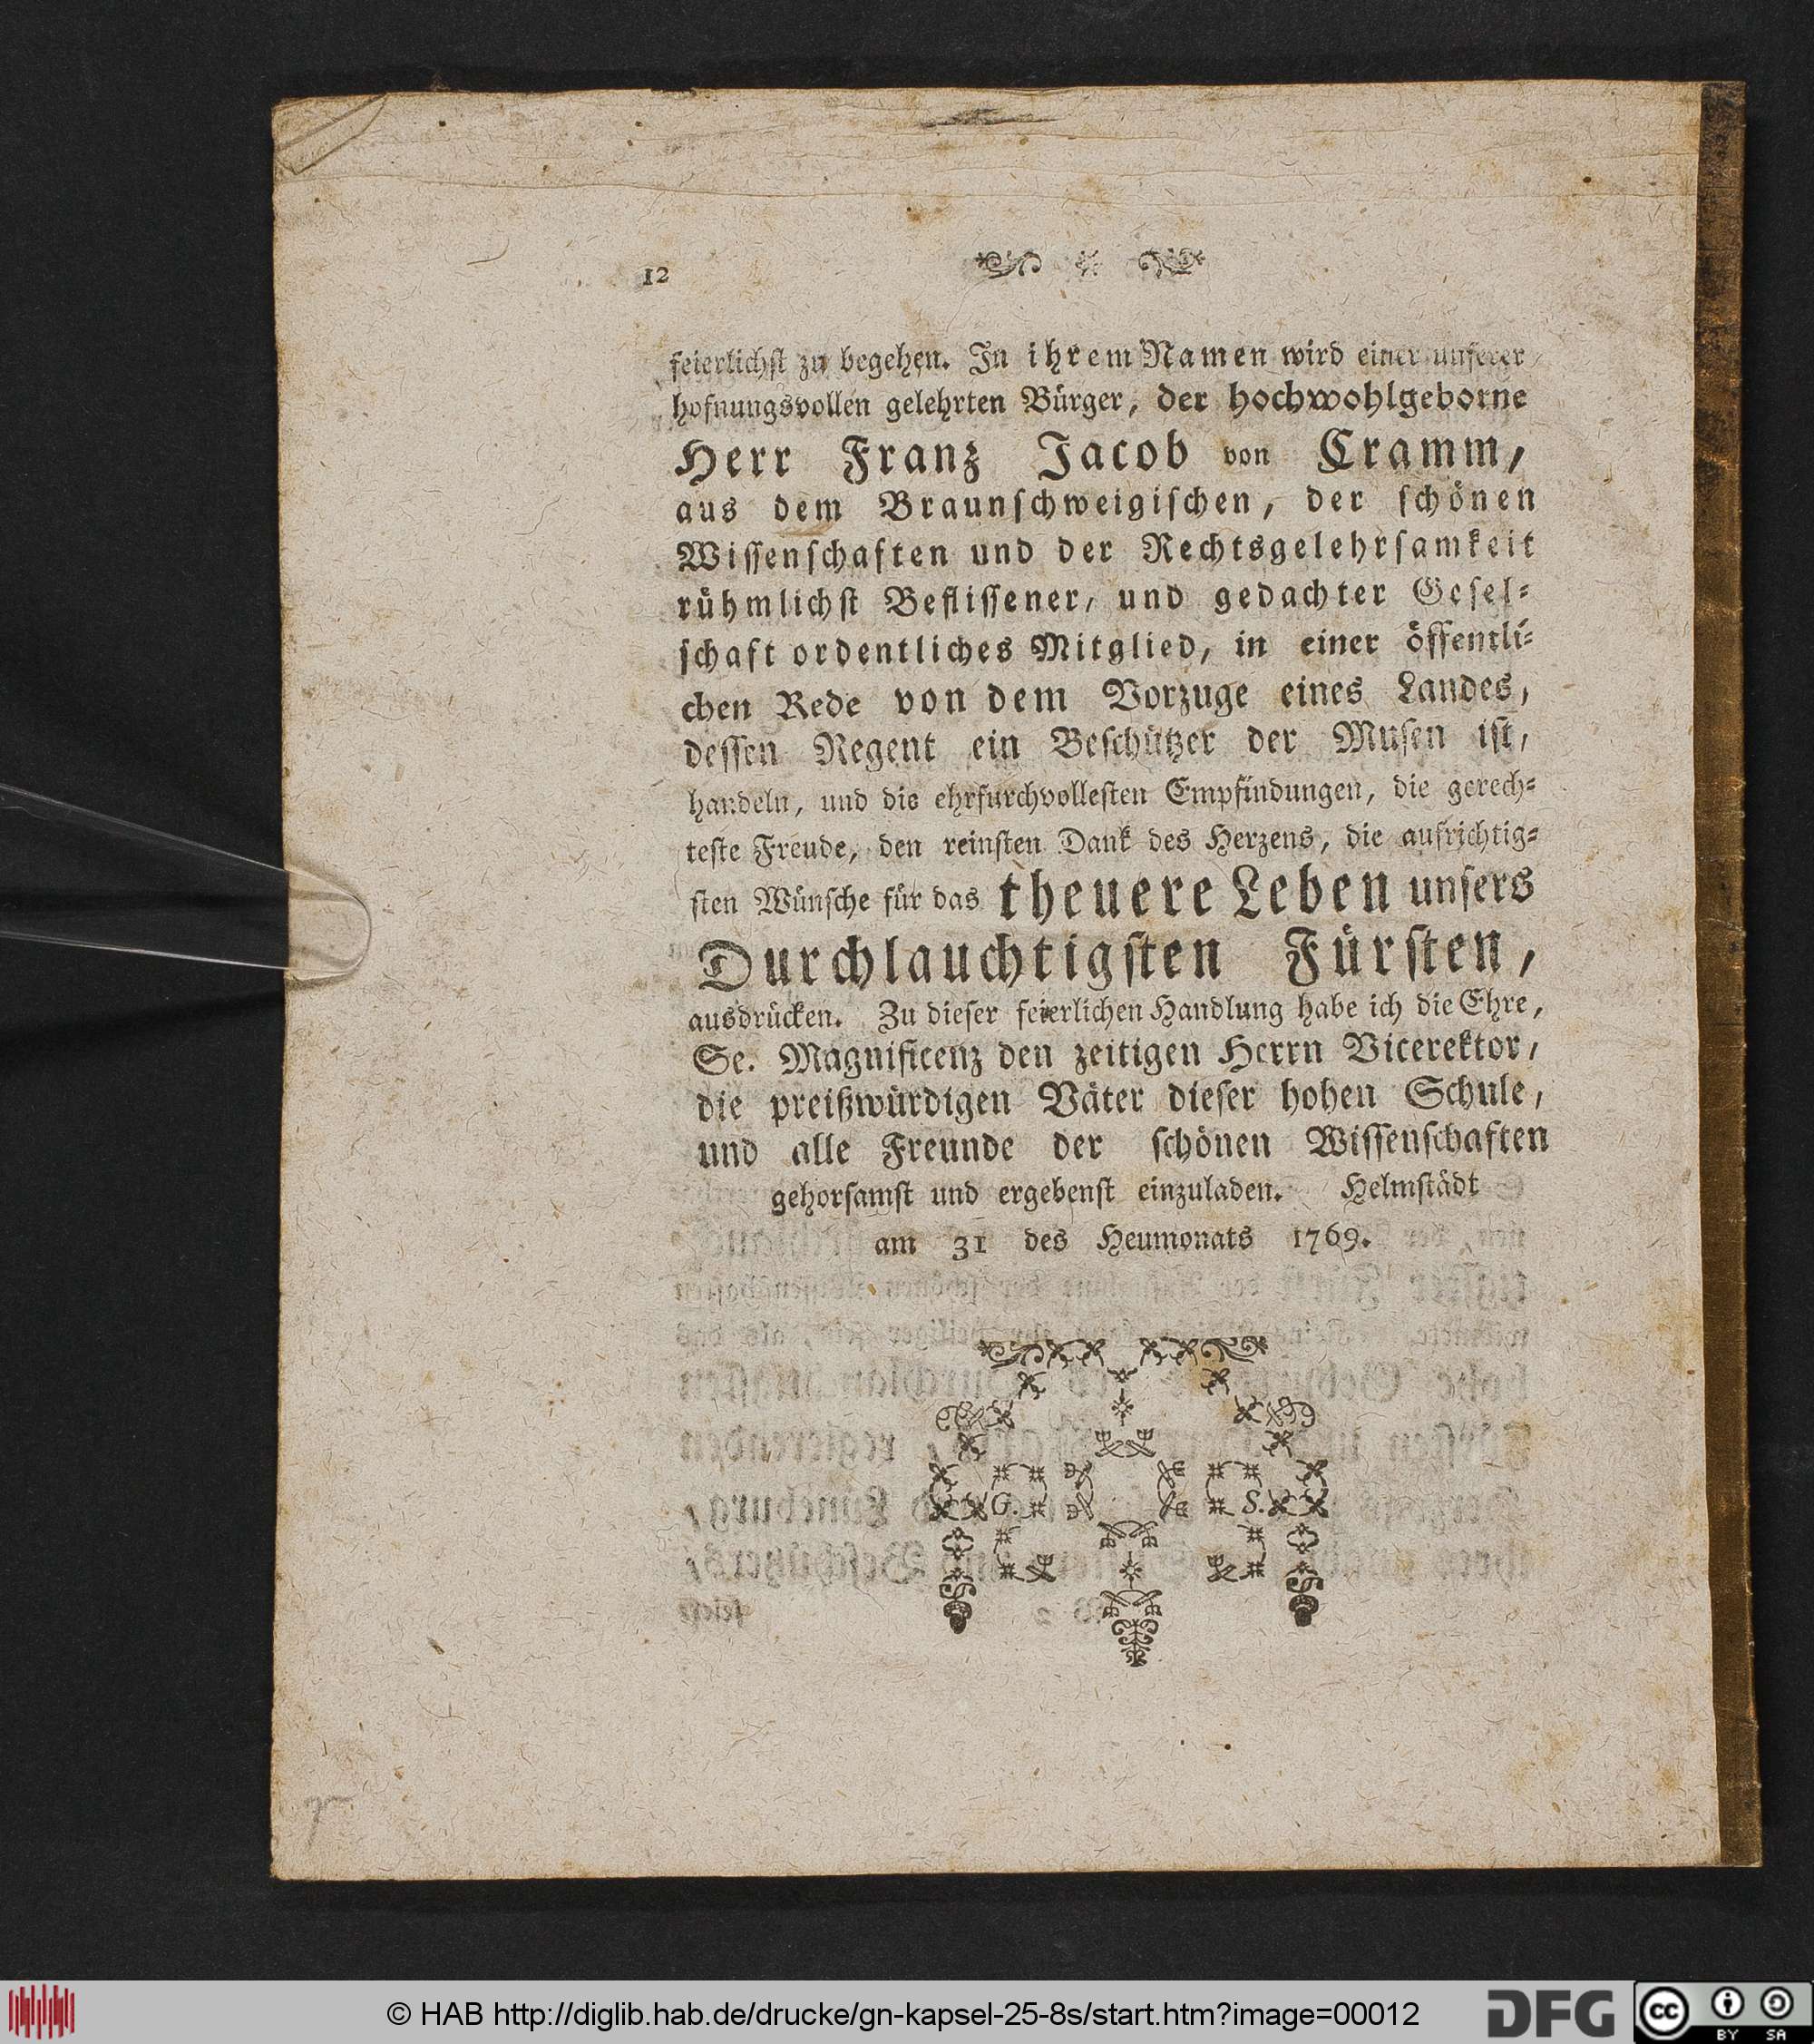 12
feierlichst zu begehen. In ihrem Namen wird einer unserer
hofnungsvollen gelehrten Bürger, der hochwohlgeborne
Herr Franz Jacob von Cramm,
aus dem Braunschweigischen, der schönen
Wissenschaften und der Rechtsgelehrsamkeit
rühmlichst Beflissener, und gedachter Gesel-
schaft ordentliches Mitglied, in einer öffentli-
chen Rede von dem Vorzuge eines Landes,
dessen Regent ein Beschützer der Musen ist,
handeln, und die ehrfurchvollesten Empfindungen, die gerech-
teste Freude, den reinsten Dank des Herzens, die aufrichtig-
sten Wünsche für das theuere Leben unsers
Durchlauchtigsten Fürsten,
ausdrücken. Zu dieser feierlichen Handlung habe ich die Ehre,
Se. Magnificenz den zeitigen Herrn Vicerektor,
die preißwürdigen Väter dieser hohen Schule,
und alle Freunde der schönen Wissenschaften
gehorsamst und ergebenst einzuladen. Helmstädt
am 31 des Heumonats 1769.
G. S.
© HAB http://diglib.hab.de/drucke/gn-kapsel-25-8s/start.htm?image=00012
DFG
cc BY SA